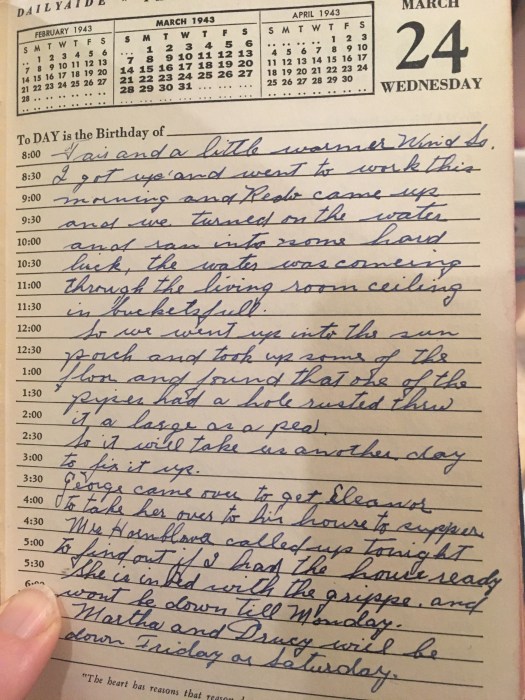 DAILYAIDE
MARCH
24
WEDNESDAY
FEBRUARY 1943
S M T W T F S
.. 1 2 3 4 5 6
7 8 9 10 11 12 13
14 15 16 17 18 19 20
21 22 23 24 25 26 27
28 .. .. .. .. .. ..
MARCH 1943
S M T W T F S
.. 1 2 3 4 5 6
7 8 9 10 11 12 13
14 15 16 17 18 19 20
21 22 23 24 25 26 27
28 29 30 31 .. .. ..
APRIL 1943
S M T W T F S
.. .. .. .. 1 2 3
4 5 6 7 8 9 10
11 12 13 14 15 16 17
18 19 20 21 22 23 24
25 26 27 28 29 30
To DAY is the Birthday of
8:00 Fair and a little warmer Wind So.
8:30 I got up and went to work this
9:00 morning and came up
9:30 and we turned on the water
10:00 and ran into some hard
10:30 luck, the water was comeing
11:00 through the living room ceiling
11:30 in bucketsfull.
12:00 So we went up into the sun
12:30 porch and took up some of the
1:00 floor and found that one of the
1:30 pipes had a hole rusted thru
2:00 it a large as a pea.
2:30 So it will take us another day
3:00 to fix it up.
3:30 George came over to get Eleanor
4:00 to take her over to his house to supper.
4:30 Mrs Hornblower called up tonight
5:00 to find out if I had the house ready
5:30 She is in bed with the grippe. and
wont be down till Monday.
Martha and Drucy will be
down Friday or Saturday.
"The heart has reasons that reason